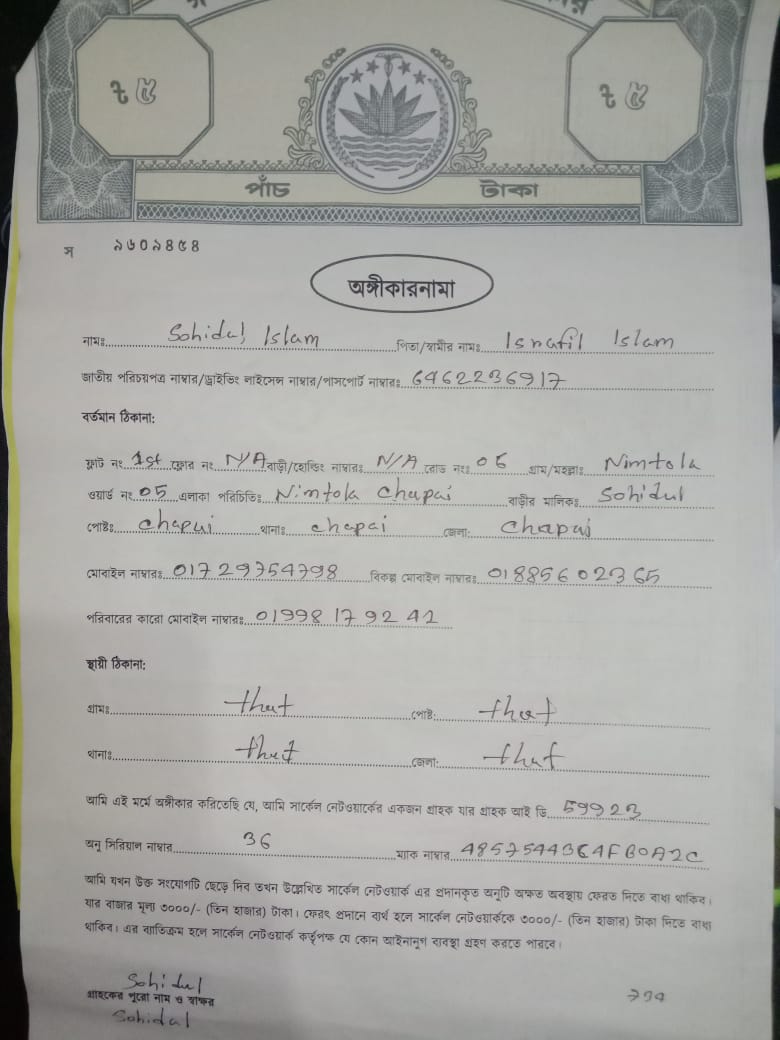 ৳ ৫ ৳ ৫
পাঁচ টাকা
স ২৬০২৪৫৪
অঙ্গীকারনামা
নামঃ Sohidul Islam পিতা/স্বামীর নামঃ Israfil Islam
জাতীয় পরিচয়পত্র নাম্বার/ড্রাইভিং লাইসেন্স নাম্বার/পাসপোর্ট নাম্বারঃ 6462236917
বর্তমান ঠিকানা:
ফ্লাট নং 1st ফ্লোর নং N/A বাড়ী/হোল্ডিং নাম্বারঃ N/A রোড নংঃ 05 গ্রাম/মহল্লাঃ Nimtola
ওয়ার্ড নং 05 এলাকা পরিচিতিঃ Nimtola Chapai বাড়ীর মালিকঃ Sohidul
পোষ্টঃ Chapai থানাঃ Chapai জেলা: Chapai
মোবাইল নাম্বারঃ 01729754798 বিকল্প মোবাইল নাম্বারঃ 01885602365
পরিবারের কারো মোবাইল নাম্বারঃ 01998179242
স্থায়ী ঠিকানা:
গ্রামঃ that পোষ্ট: that
থানাঃ that জেলা: that
আমি এই মর্মে অঙ্গীকার করিতেছি যে, আমি সার্কেল নেটওয়ার্কের একজন গ্রাহক যার গ্রাহক আই ডি 59923
অনু সিরিয়াল নাম্বার 36 ম্যাক নাম্বার 4857544364FB0A2C
আমি যখন উক্ত সংযোগটি ছেড়ে দিব তখন উল্লেখিত সার্কেল নেটওয়ার্ক এর প্রদানকৃত অনুটি অক্ষত অবস্থায় ফেরত দিতে বাধ্য থাকিব।
যার বাজার মূল্য ৩০০০/- (তিন হাজার) টাকা। ফেরৎ প্রদানে ব্যর্থ হলে সার্কেল নেটওয়ার্ককে ৩০০০/- (তিন হাজার) টাকা দিতে বাধ্য
থাকিব। এর ব্যতিক্রম হলে সার্কেল নেটওয়ার্ক কর্তৃপক্ষ যে কোন আইনানুগ ব্যবস্থা গ্রহণ করতে পারবে।
Sohidul
গ্রাহকের পুরো নাম ও স্বাক্ষর
Sohidul